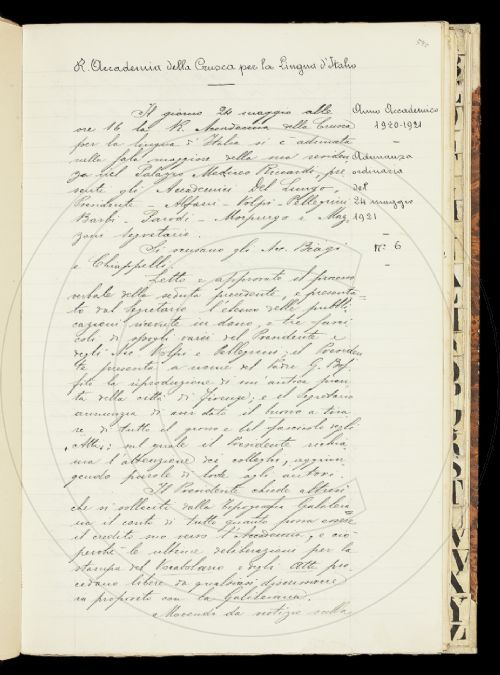 R. Accademia della Crusca per la Lingua d'Italia
Il giorno 24 maggio alle
ore 16 la R. Accademia della Crusca
per la lingua d'Italia si è adunata
nella sala maggiore della sua residen
za nel Palazzo Mediceo Riccardo, pre
senti gli Accademici Del Lungo,
Presidente - Alfani - Volpi - Pellegrini
Barbi - Parodi - Morpurgo e Maz
zoni Segretario.
Si scusano gli Acc. Biagi
e Chiappelli.
Letto e approvato il processo
verbale della seduta precedente, e presenta
to dal Segretario l'elenco delle pubbli
cazioni ricevute in dono, e tre fasci
coli di spogli varii del Presidente e
degli Acc. Volpi e Pellegrini; il Presiden
te presenta a nome del Padre G. Bof
fito la riproduzione di un'antica pian
ta della città di Firenze; e il Segretario
annunzia di aver dato il buono a tira
re di tutto il giorno e del fascicolo degli
"Atti"; sul quale il Presidente richia
ma l'attenzione dei colleghi, aggiun
gendo parole di lode agli autori.
Il Presidente chiede altresì
che si solleciti dalla Tipografia Galileia
na il conto di tutto quanto possa essere
il credito suo verso l'Accademia, e ciò
perchè le ulteriori deliberazioni per la
stampa del Vocabolario e degli Atti pro
cedano libere da qualsiasi
in proposito con la Galileiana.
Mazzoni dà notizie sulla
Anno Accademico
1920-1921
Adunanza
ordinaria
del
24 maggio
1921
N.° 6